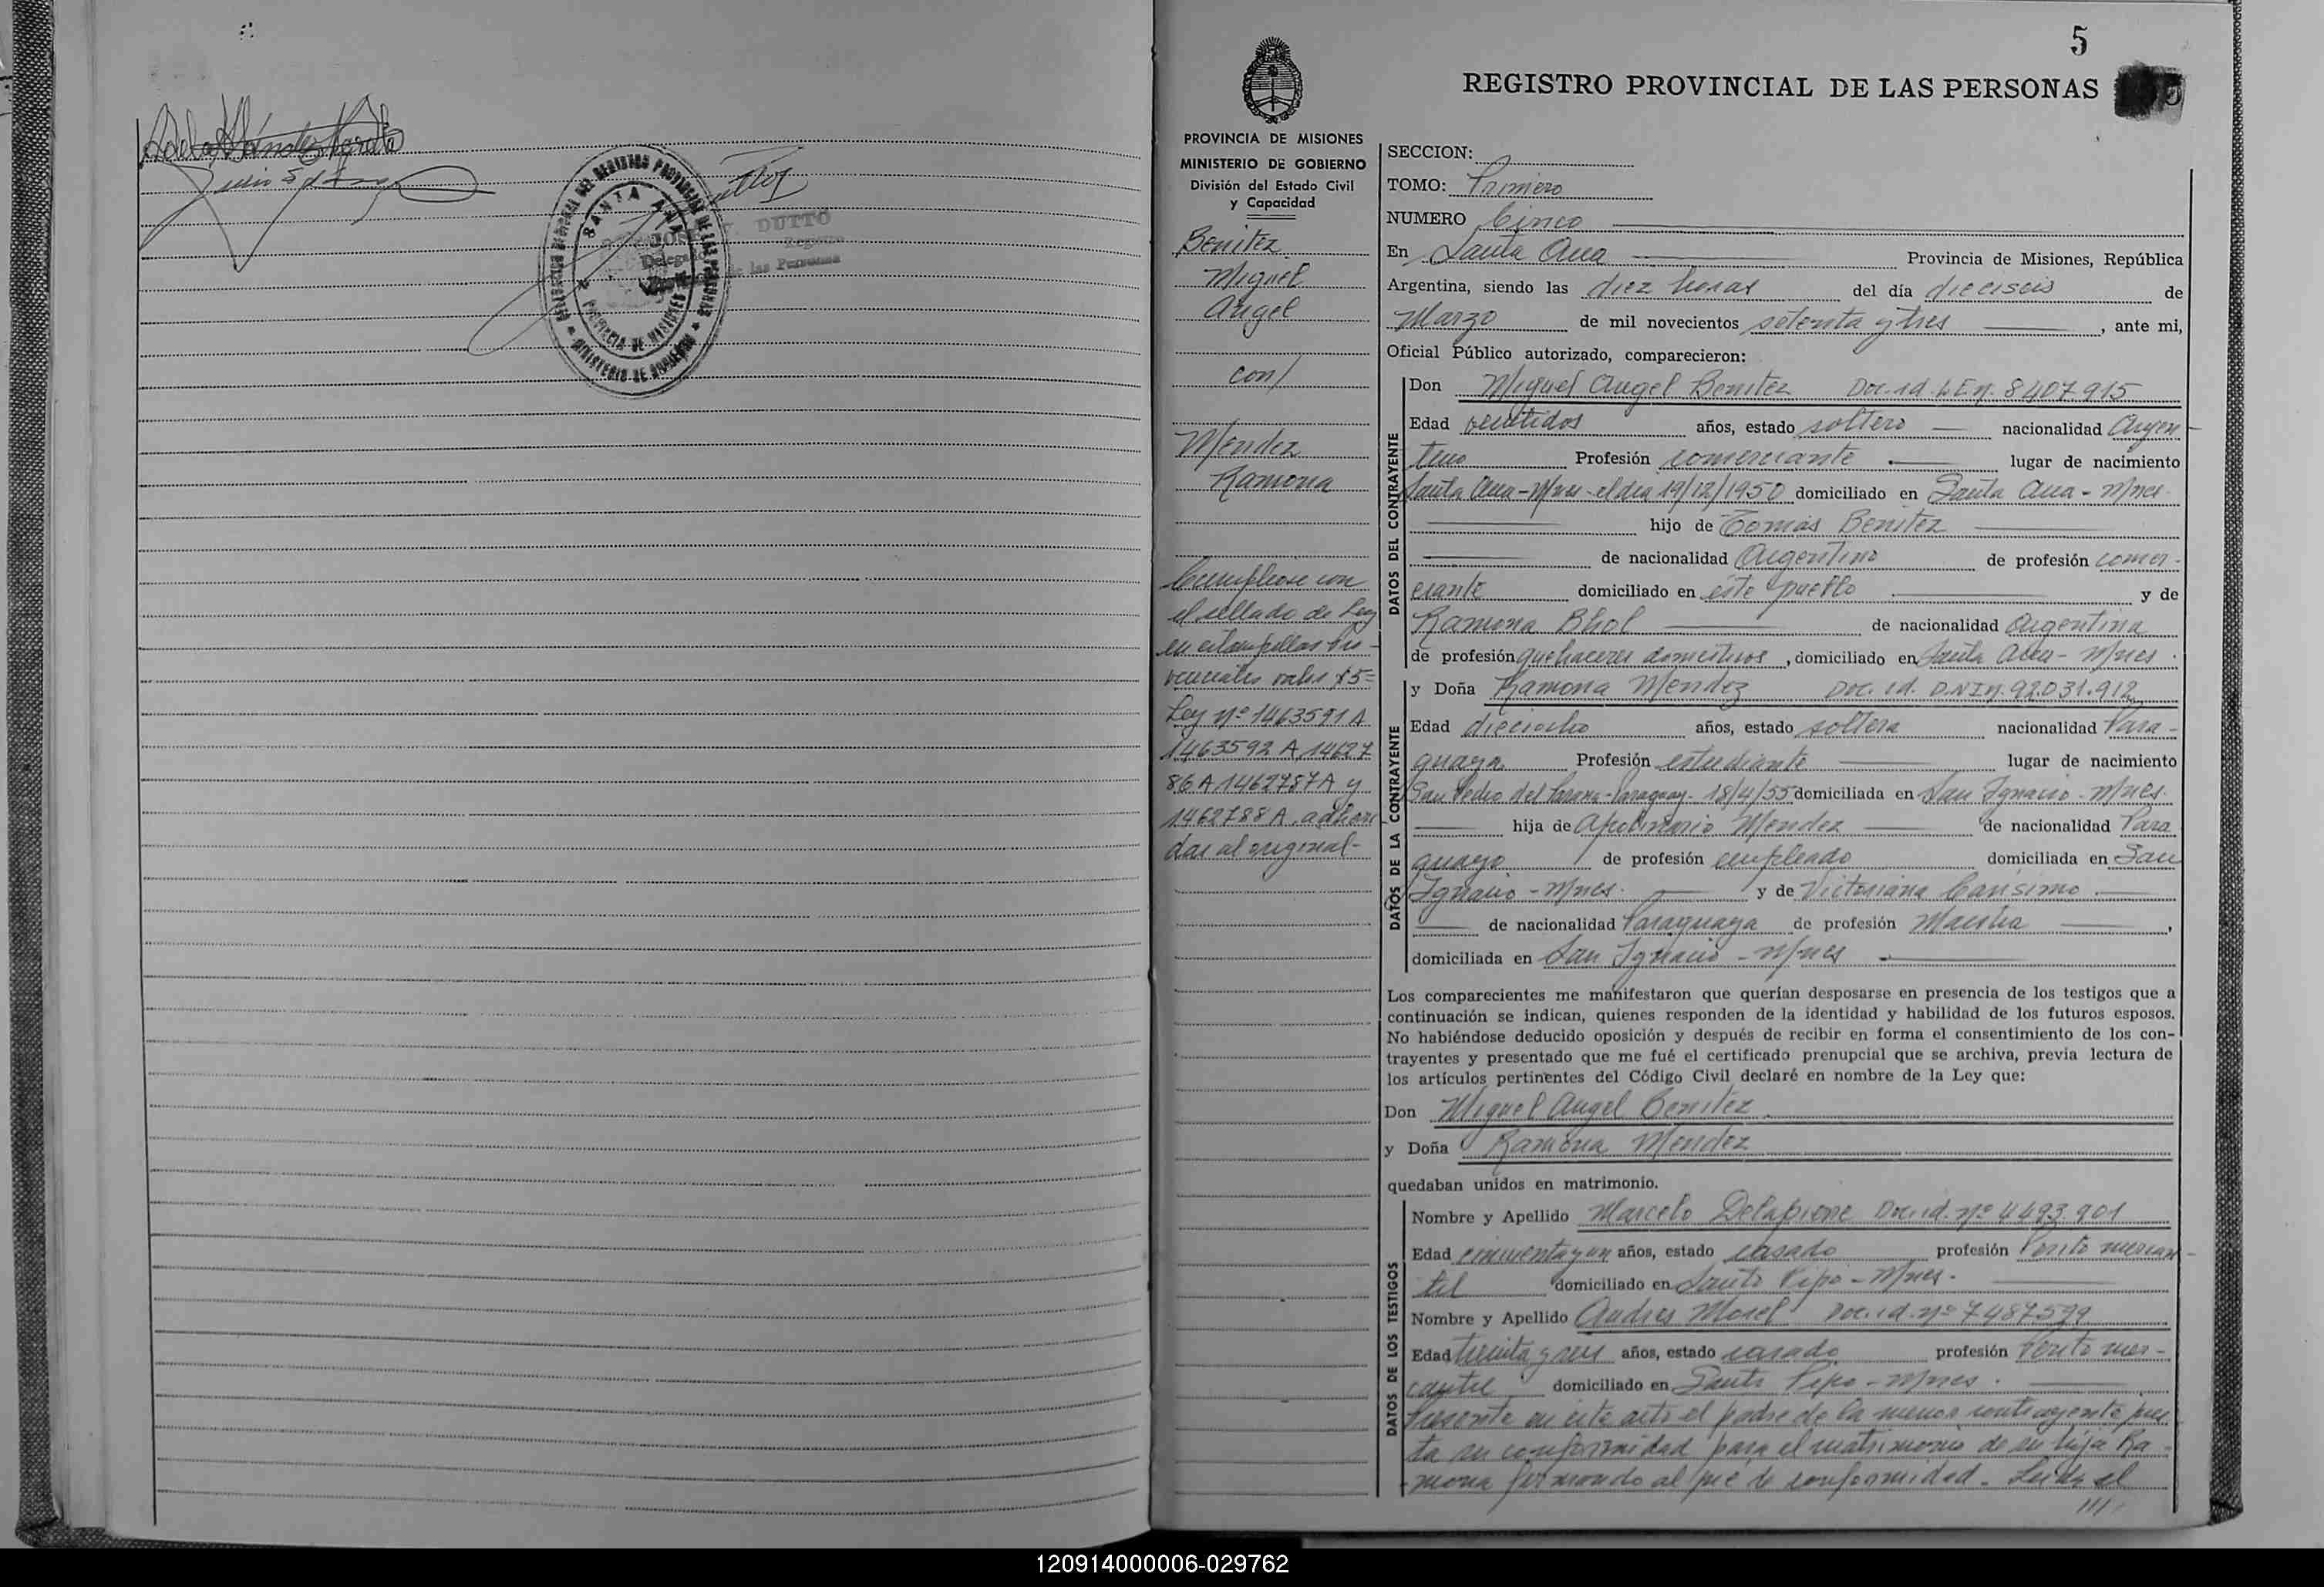 DELEGACION REGIONAL DEL REGISTRO PROVINCIAL DE LAS PERSONAS
SANTA ANA
PROVINCIA DE MISIONES
MINISTERIO DE GOBIERNO
JOSE V. DUTTO
Delegado
Registro
de las Personas
5
REGISTRO PROVINCIAL DE LAS PERSONAS
PROVINCIA DE MISIONES
MINISTERIO DE GOBIERNO
División del Estado Civil
y Capacidad
Benitez
Miguel
Angel
con/
Mendez
Ramona
Cumplese con
el sellado de Ley
en estampillas Pro-
vinciales valor $5=
Ley Nº 1463591 A
1463592 A, 14627
86 A 1462787 A y
1462788 A, adheri
das al original-
SECCION:
TOMO: Primero
NUMERO Cinco
En Santa Ana Provincia de Misiones, República
Argentina, siendo las diez horas del día dieciseis de
Marzo de mil novecientos setenta y tres , ante mi,
Oficial Público autorizado, comparecieron:
DATOS DEL CONTRAYENTE
Don Miguel Angel Benitez Doc. id. L.E.Nº. 8407.915
Edad veintidos años, estado soltero nacionalidad Argen-
tino Profesión comerciante lugar de nacimiento
Santa Ana-Mnes-el dia 19/12/1950 domiciliado en Santa Ana-Mnes.
hijo de Tomás Benitez
de nacionalidad Argentino de profesión comer-
ciante domiciliado en este pueblo y de
Ramona Bhol de nacionalidad Argentina
de profesión quehaceres domesticos , domiciliado en Santa Ana-Mnes.
DATOS DE LA CONTRAYENTE
y Doña Ramona Mendez Doc. id. D.N.I.Nº. 92.031.912
Edad dieciocho años, estado soltera nacionalidad Para-
guaya Profesión estudiante lugar de nacimiento
San Pedro del Parana-Paraguay-18/4/55 domiciliada en San Ignacio-Mnes.
hija de Apolinario Mendez de nacionalidad Para
guayo de profesión empleado domiciliada en San
Ignacio-Mnes. y de Victoriana Carisimo
de nacionalidad Paraguaya de profesión Maestra ,
domiciliada en San Ignacio-Mnes
Los comparecientes me manifestaron que querían desposarse en presencia de los testigos que a
continuación se indican, quienes responden de la identidad y habilidad de los futuros esposos.
No habiéndose deducido oposición y después de recibir en forma el consentimiento de los con-
trayentes y presentado que me fué el certificado prenupcial que se archiva, previa lectura de
los artículos pertinentes del Código Civil declaré en nombre de la Ley que:
Don Miguel Angel Benitez
y Doña Ramona Mendez
quedaban unidos en matrimonio.
DATOS DE LOS TESTIGOS
Nombre y Apellido Marcelo Delapiere Doc. id. Nº 4493.901
Edad cincuenta y un años, estado casado profesión Perito mercan-
til domiciliado en Santo Pipo-Mnes.
Nombre y Apellido Andres Morel Doc. id. Nº 7487599
Edad treinta y seis años, estado casado profesión Perito mer-
cantil domiciliado en Santo Pipo-Mnes.
Presente en este acto el padre de la menor contrayente pres
ta su conformidad para el matrimonio de su hija Ra-
mona firmando al pie de conformidad. Leida el
///
120914000006-029762